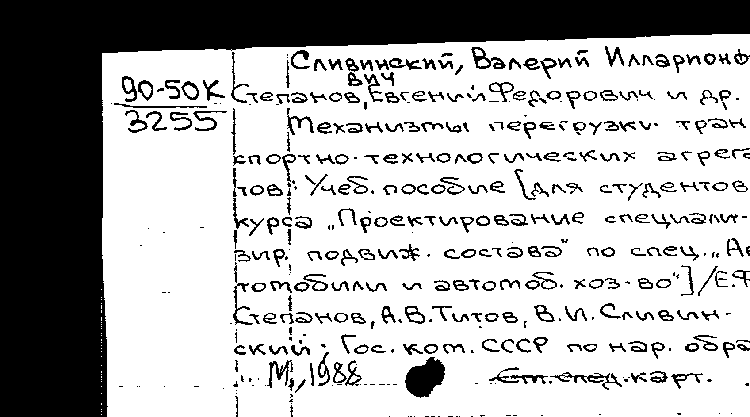 Сливинский, Валерий Илларионо
вич
90-50К Степанов, Евгений Федорович и др.
3255 Механизмы перегрузки тран
спортно-технологических агрега
тов: Учеб. пособие [для студентов
курса „Проектирование специали-
зир. подвиж. состава" по спец. „Ав
томобили и автомоб. хоз-во"] / Е.Ф
Степанов, А.В. Титов, В.И. Сливин-
ский; Гос. ком. СССР по нар. обра
М., 1988 См. след. карт.